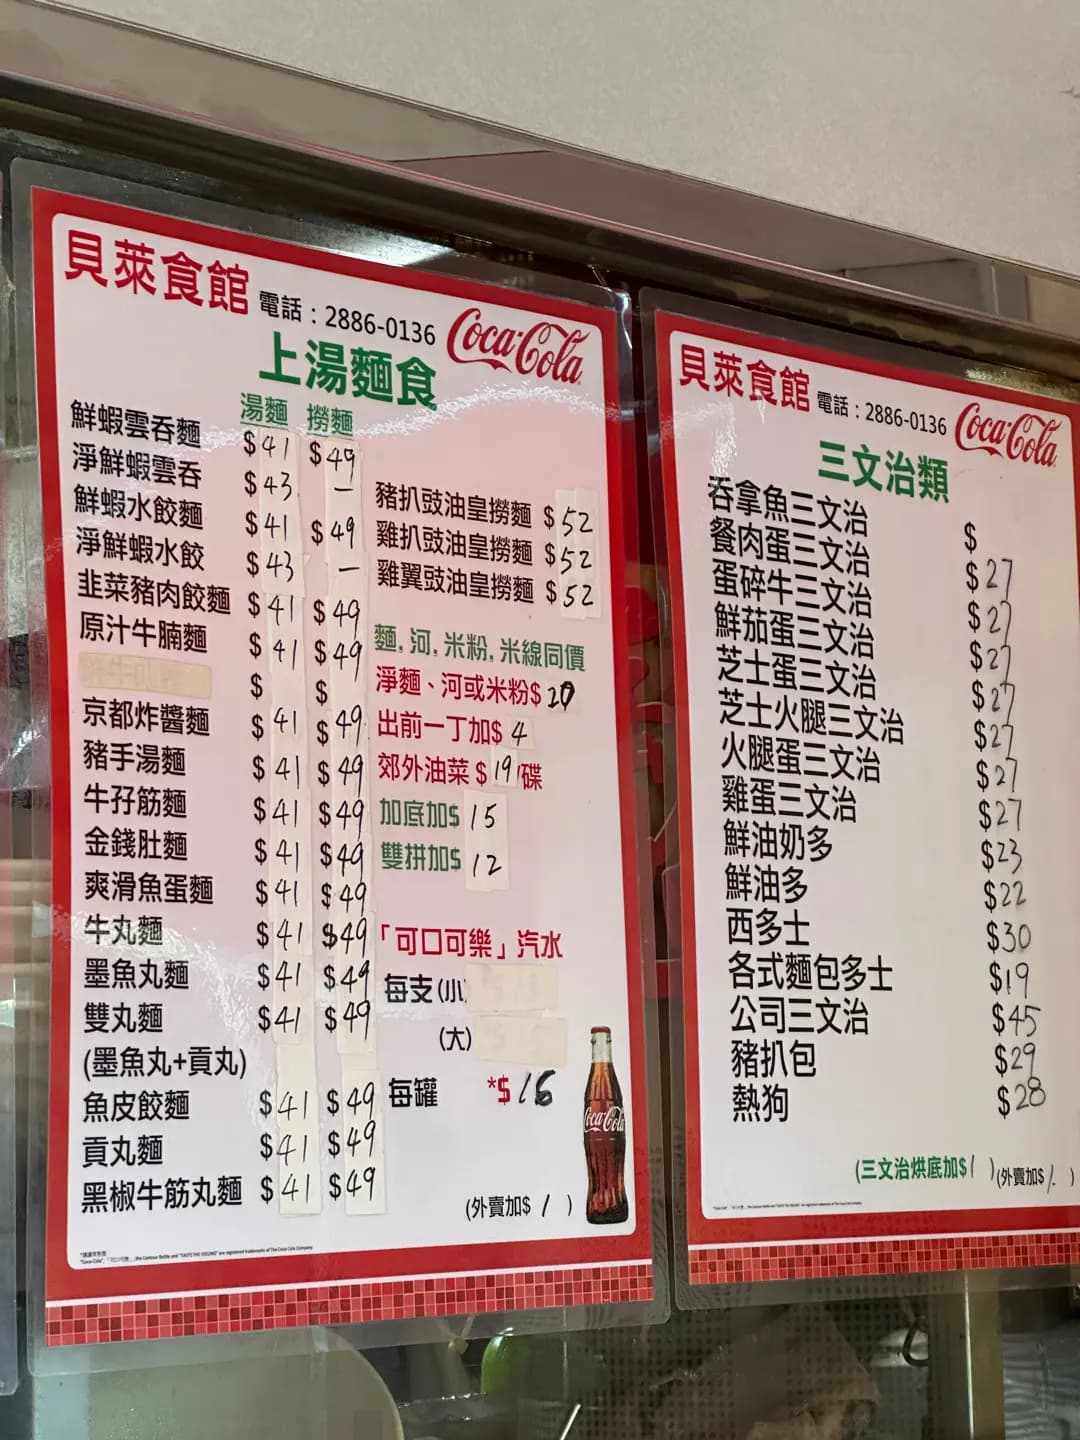 貝萊食館 電話：2886-0136 Coca-Cola
上湯麵食
湯麵 撈麵
鮮蝦雲吞麵 $41 $49
淨鮮蝦雲吞 $43 —
鮮蝦水餃麵 $41 $49
淨鮮蝦水餃 $43 —
韭菜豬肉餃麵 $41 $49
原汁牛腩麵 $41 $49
$ $
京都炸醬麵 $41 $49
豬手湯麵 $41 $49
牛孖筋麵 $41 $49
金錢肚麵 $41 $49
爽滑魚蛋麵 $41 $49
牛丸麵 $41 $49
墨魚丸麵 $41 $49
雙丸麵 $41 $49
(墨魚丸+貢丸)
魚皮餃麵 $41 $49
貢丸麵 $41 $49
黑椒牛筋丸麵 $41 $49
豬扒豉油皇撈麵 $52
雞扒豉油皇撈麵 $52
雞翼豉油皇撈麵 $52
麵, 河, 米粉, 米線同價
淨麵、河或米粉$ 20
出前一丁加$ 4
郊外油菜 $ 19/碟
加底加$ 15
雙拼加$ 12
「可口可樂」汽水
每支(小
(大)
每罐 *$ 16
Coca-Cola
(外賣加$ 1 )
貝萊食館 電話：2886-0136 Coca-Cola
三文治類
吞拿魚三文治 $
餐肉蛋三文治 $27
蛋碎牛三文治 $27
鮮茄蛋三文治 $27
芝士蛋三文治 $27
芝士火腿三文治 $27
火腿蛋三文治 $27
雞蛋三文治 $27
鮮油奶多 $23
鮮油多 $22
西多士 $30
各式麵包多士 $19
公司三文治 $45
豬扒包 $29
熱狗 $28
(三文治烘底加$1 ) (外賣加$1 )